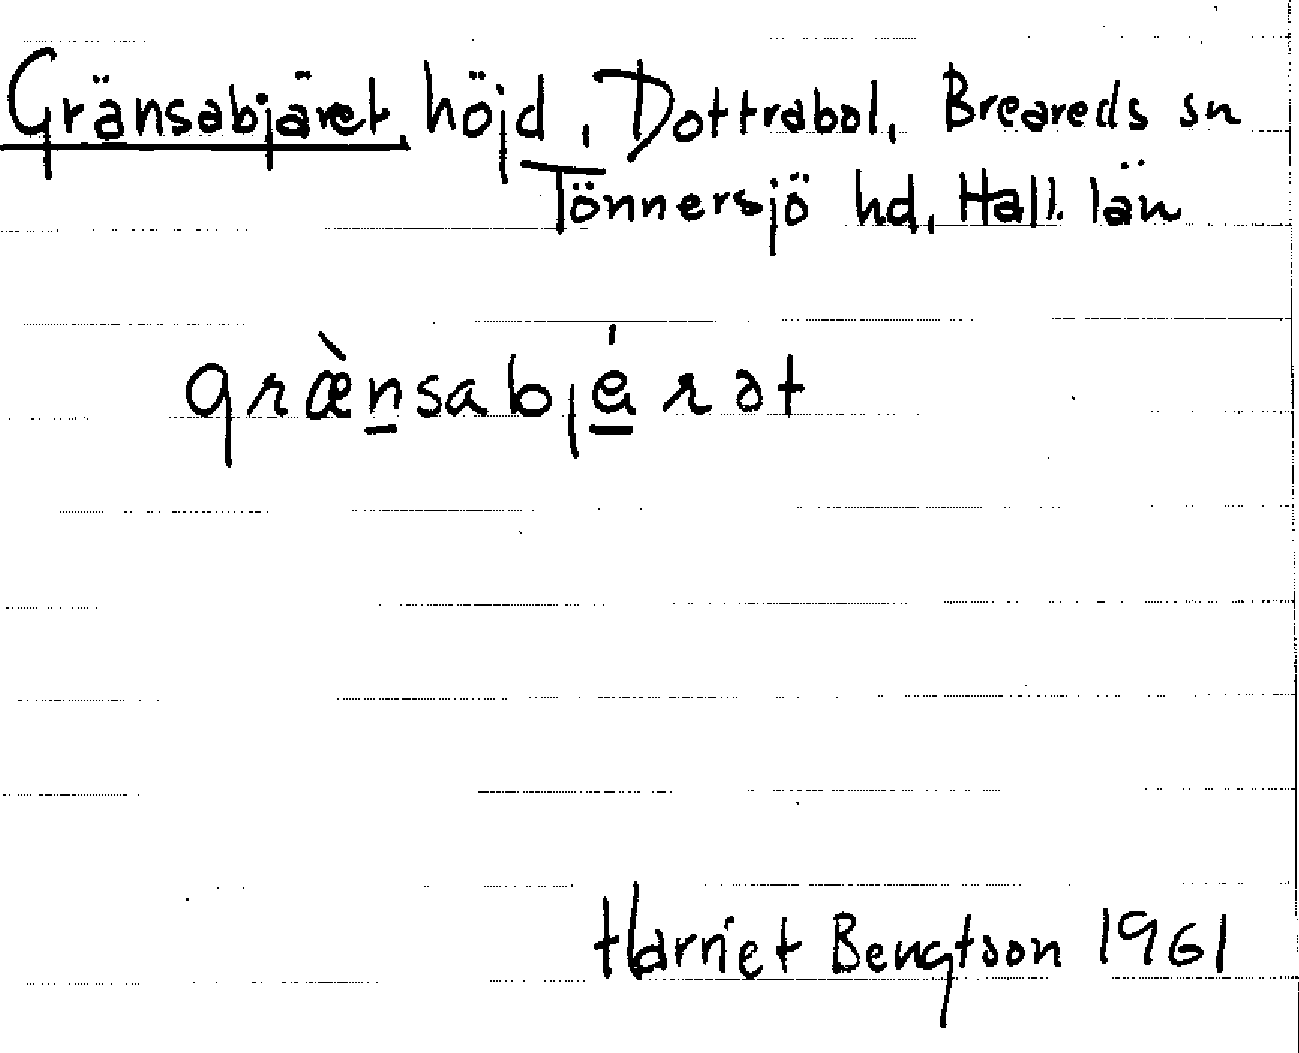 Gränsabjäret, höjd, Dottrabol, Breareds sn
Tönnersjö hd, Hall. län
græ̀ṉsabjé̱rət
Harriet Bengtson 1961